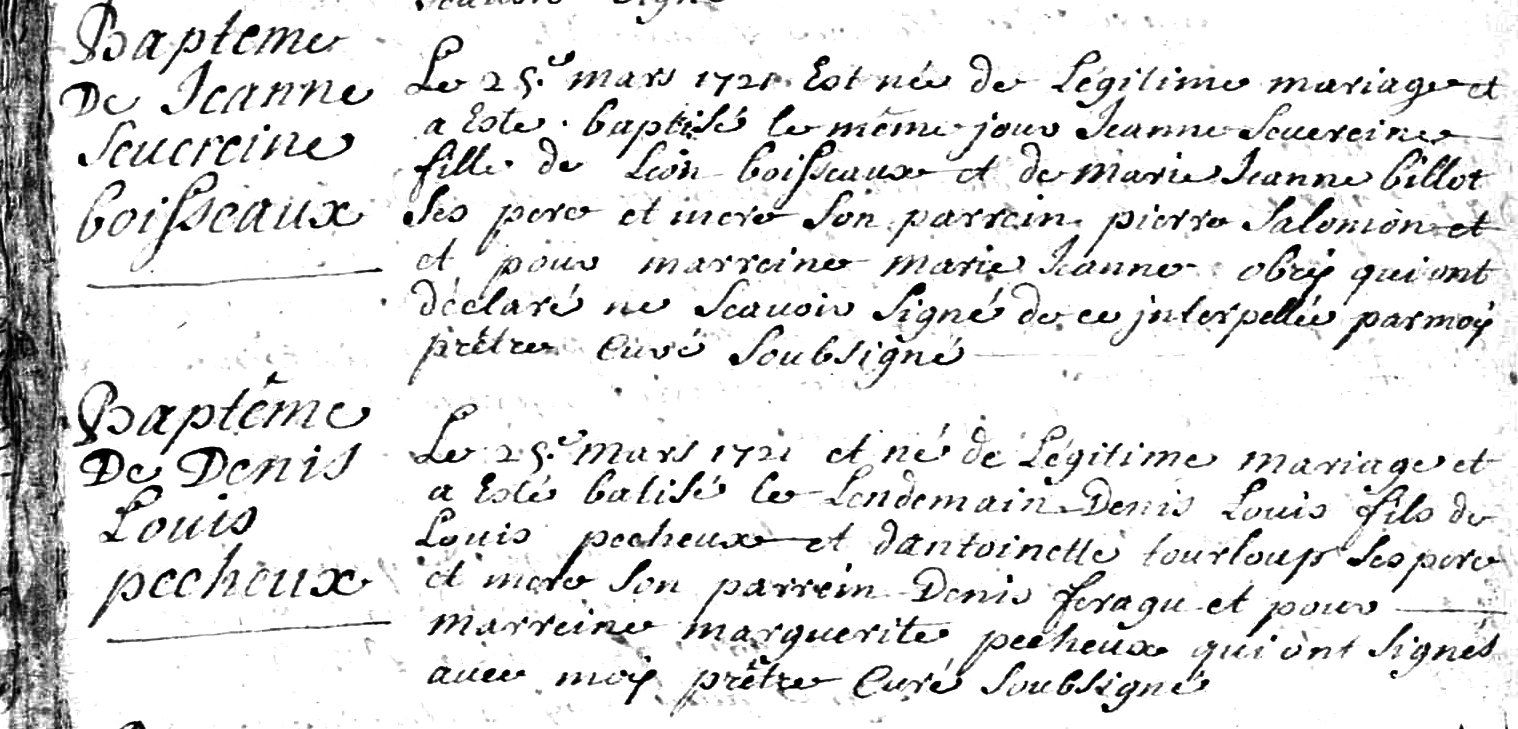 scavoir signé
Bapteme
De Jeanne
Seuereine
boisseaux
Le 25.e mars 1721 Est né de Légitime mariage et
a Esté baptisé le même jour Jeanne Seuereine
fille de Léon boisseaux et de marie Jeanne billot
Ses pere et mere Son parrein pierre Salomon et
et pour marreine marie Jeanne obry qui ont
déclaré ne Scauoir Signé de ce jnterpellée par moy
prêtre Curé Soubsigné
Baptême
De Denis
Louis
pecheux
Le 25.e mars 1721 et né de Légitime mariage et
a Esté batisé le Lendemain Denis Louis fils de
Louis pecheux et dantoinette tourloup Ses pere
et mere Son parrein Denis feragu et pour
marreine marguerite pecheux qui ont Signés
auec moy prêtre Curé Soubsigné